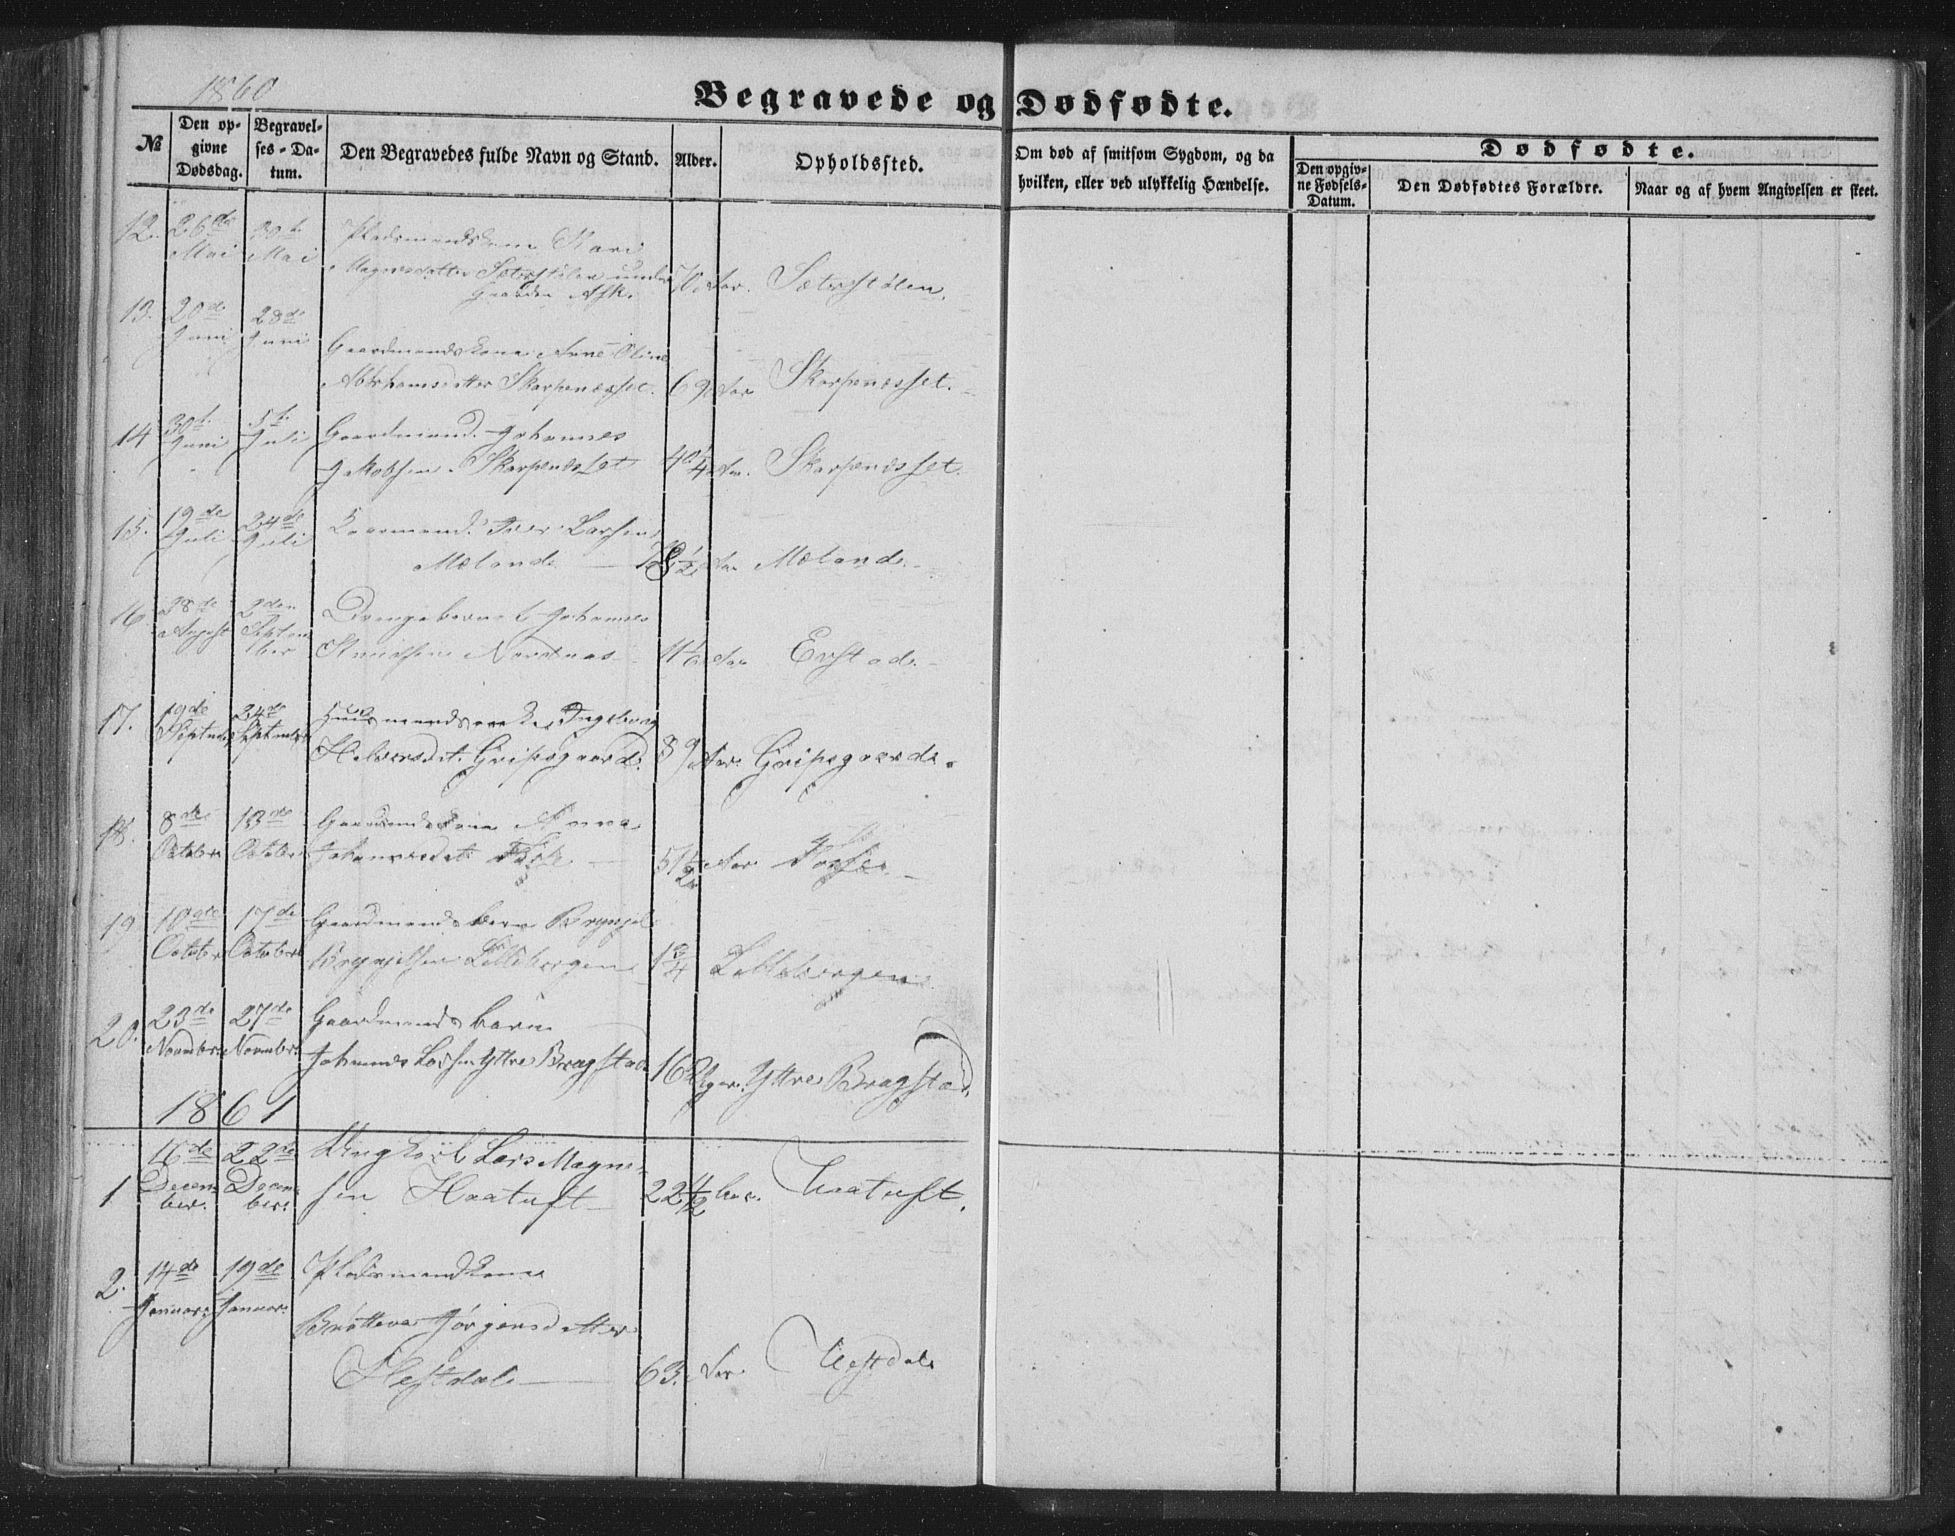 1860
Begravede og Dødfødte.
№
Den opgivne Dødsdag.
Begravelses-Datum.
Den Begravedes fulde Navn og Stand.
Alder.
Opholdssted.
Om død af smitsom Sygdom, og da hvilken, eller ved ulykkelig Hændelse.
Dødfødte.
Den opgivne Fødsels-Datum.
Den Dødfødtes Forældre.
Naar og af hvem Angivelsen er skeet.
12. 26de Mai 30te Mai Pladsmandskone Kari
Magnesdatter Sæterstølen under
Gaarden Ask. 70 Aar. Sæterstølen.
13. 20de Juni 28de Juni
Gaardmandskone Anne Oline
Abrahamsdatter Skarpenesset. 69 Aar Skarpenesset.
14 30te Juni 5te Juli Gaardmand Johannes
Jakobsen Skarpenesset 40 1/4 Aar. Skarpenesset.
15. 19de Juli 24de Juli Kaarmand Iver Larsen
Mæland 1/2 Aar Mæland.
16 28de August 2den September Drengebarnet Johannes
Knudsen Nordnæs Aar Erstad.
17. 19de September 24de September Huusmandsenke Ingeborg
Halvorsdt. Gripsgaard. 89 Aar. Gripsgaard.
18. 8de October 13de October Gaardmandskone Anna
Johannesdt. 51 1/2 Aar
19 10de October 17de October Gaardmandsbarn Brynjel
Brynjelsen Littlebergen 1 3/4 Littlebergen
20. 23de November 27de November Gaardmandsbarn
Johannes Larsen Yttre Bragstad 16 Uger. Yttre Bragstad.
1861
1 16de December. 22de December. Ungkarl Lars Magnesen
Haatuft 22 1/2 Aar. Haatuft.
2. 14de Januar. 19de Januar. Pladsmandkone
Brötteva Jörgensdatter
Hestdal 63. Aar Hestdal